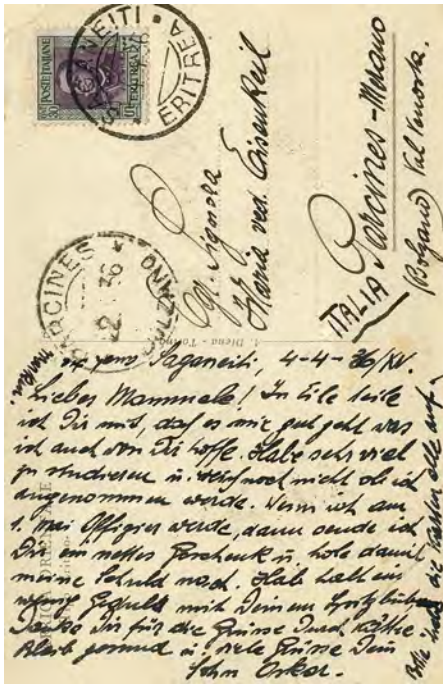 POSTE ITALIANE
ERITREA
SAGANEITI
ERITREA
PARCINES
BOLZANO
Maria ved. Eisenkeil
ITALIA Parcines-Merano
(Bolzano) Val Venosta.
Saganeiti, 4-4-36/XV.
Liebes Mammele! In Eile teile
ich Dir mit, daß es mir gut geht was
ich auch von Dir hoffe. Habe sehr viel
zu studieren u. weiß noch nicht ob ich
angenommen werde. Wenn ich am
1. Mai Offizier werde, dann sende ich
Dir ein nettes Geschenk u. hole damit
meine Schuld nach. Hab halt ein
wenig Geduld mit Deinem Spitzbüben
Danke Dir für die Grüsse Durch
Bleib gesund u. viele Grüsse Dein
Sohn Oskar.
Bitte die Karten alle auf